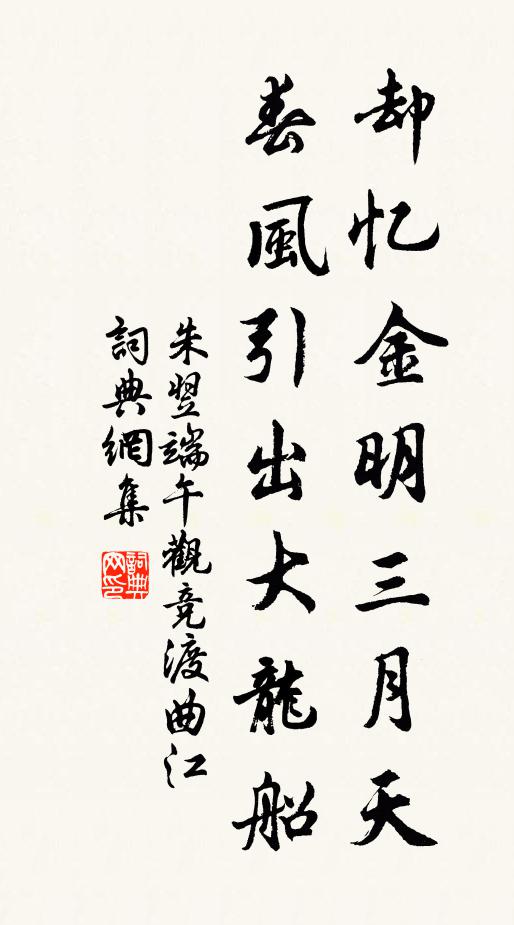 却忆金明三月天
春風引出大龍船
朱翌端午觀竞渡曲江
詞典網集
詞典网印